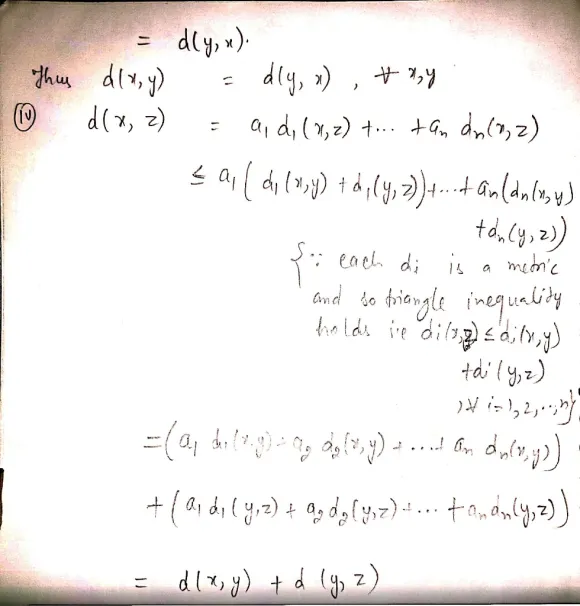 = d(y,x).
Thus d(x,y) = d(y, x) , ∀ x,y
(iv) d(x, z) = a₁ d₁ (x,z) +... +aₙ dₙ(x,z)
≤ a₁ ( d₁ (x,y) + d₁(y,z))+...+ aₙ(dₙ(x,y)
+dₙ(y,z))
{∵ each di is a metric
and so triangle inequality
holds i.e di(x,z) ≤ di(x,y)
+di (y,z)
, ∀ i=1,2,..,n}
=(a₁ d₁(x,y)+ a₂ d₂(x,y) + ...+ aₙ dₙ(x,y))
+ (a₁ d₁ (y,z) + a₂ d₂(y,z)+... + aₙdₙ(y,z))
= d(x,y) + d (y, z)